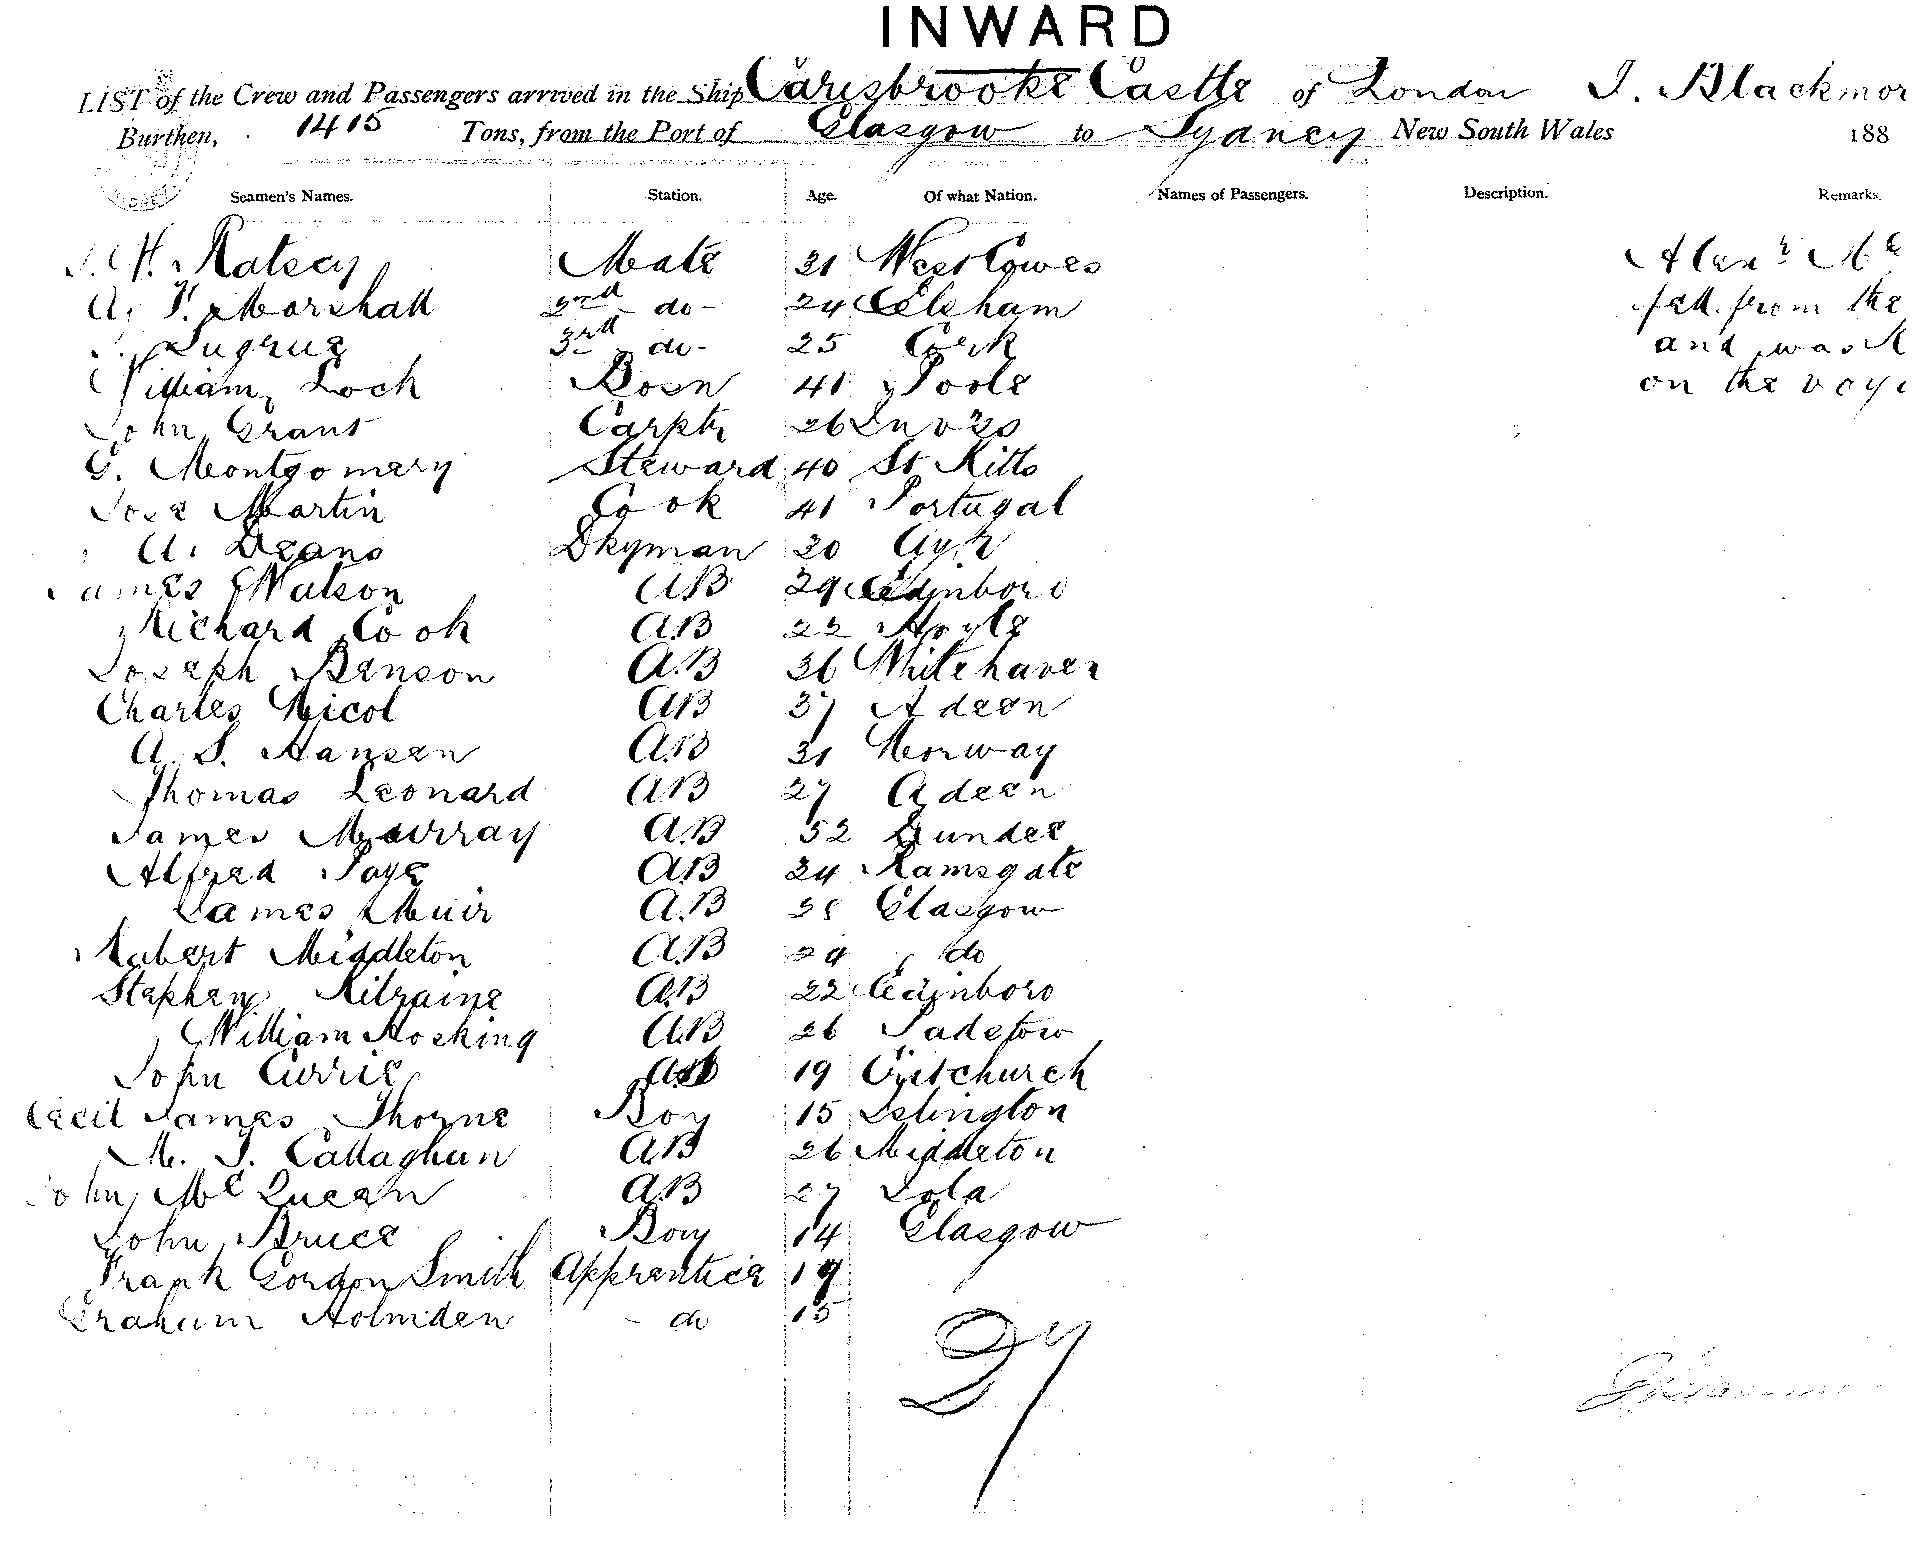 INWARD
LIST of the Crew and Passengers arrived in the Ship Carisbrooke Castle of London J. Blackmor
Burthen, 1415 Tons, from the Port of Glasgow to Sydney New South Wales 188
Seamen's Names. Station. Age. Of what Nation. Names of Passengers. Description. Remarks.
H. Ratsey Mate 31 West Cowes Alexr Mc
A. F. Marshall 2nd do 24 Elsham fell from the
Sugrue 3rd do 25 Cork and was k
William Loch Bosn 41 Poole on the voya
John Grant Carptr 26 Invss
G. Montgomery Steward 40 St Kitts
Jose Martin Cook 41 Portugal
A. Deans Dkyman 20 Ayr
James Watson AB 29 Edinboro
Richard Cook AB 22
Joseph Benson AB 36 Whitehaven
Charles Nicol AB 37 Adeen
A. S. Hansen AB 31 Norway
Thomas Leonard AB 27 Adeen
James Murray AB 52 Dundee
Alfred Page AB 24 Ramsgate
James Muir AB 38 Glasgow
Robert Middleton AB 29 do
Stephen Kilraine AB 22 Edinboro
William Hosking AB 26 Padstow
John Currie AB 19 Critchurch
Cecil James Thorne Boy 15 Islington
M. J. Callaghan AB 26 Middleton
John McQueen AB 27
John Bruce Boy 14 Glasgow
Frank Gordon Smith Apprentice 19
Graham Holmden do 15
27